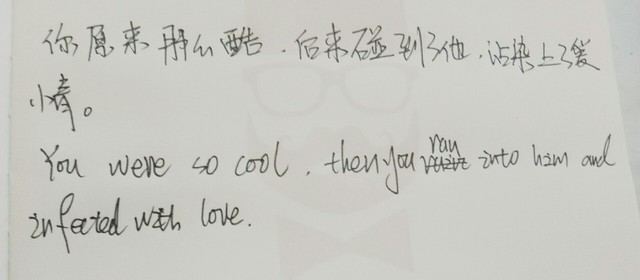 你愿来那么酷，后来碰到了他，沾染上了爱
情。
You were so cool, then you ran into him and
infected with love.